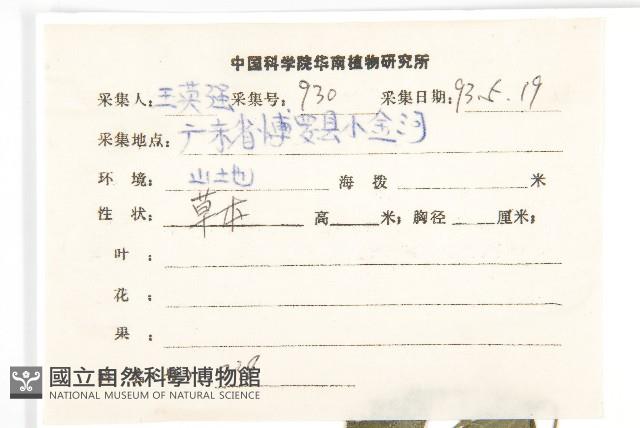 中国科学院华南植物研究所
采集人：王英强 采集号：930 采集日期：93.5.19
采集地点：广东省博罗县小金河
环境：山地 海拨 米
性状：草本 高 米；胸径 厘米；
叶：
花：
果：
國立自然科學博物館
NATIONAL MUSEUM OF NATURAL SCIENCE